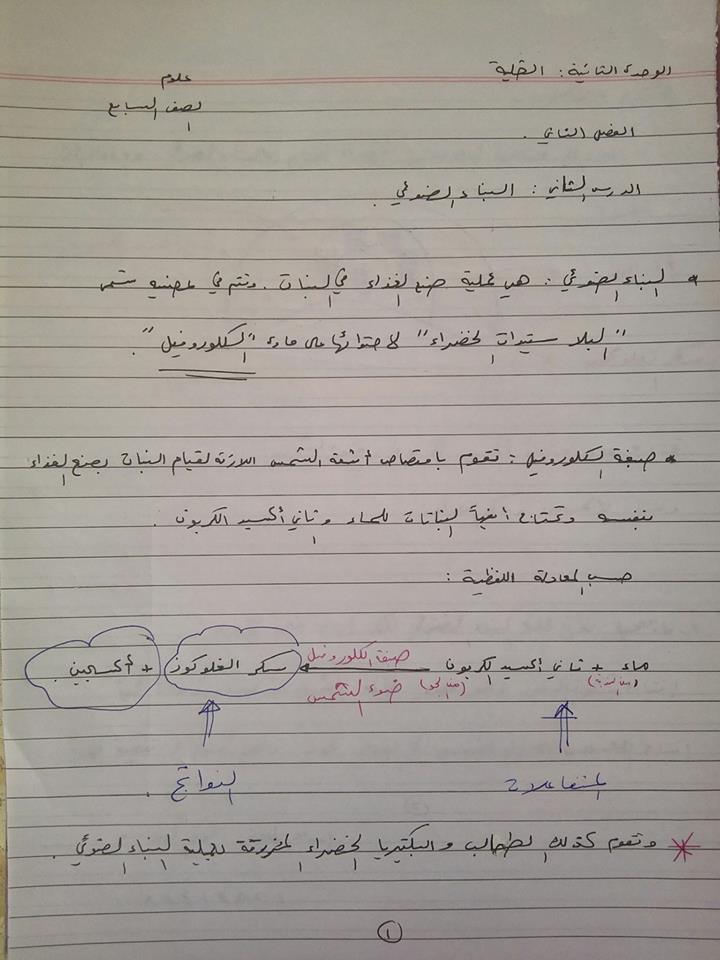 الوحدة الثانية : الخلية
علوم
الصف السابع
الفصل الثاني .
الدرس الثاني : البناء الضوئي .
* البناء الضوئي : هي عملية صنع الغذاء في النبات . وتتم في عضيه تسمى
"البلاستيدات الخضراء" لاحتوائها على مادة "الكلوروفيل" .
* صبغة الكلوروفيل : تقوم بامتصاص أشعة الشمس اللازمة لقيام النبات بصنع الغذاء
بنفسه وتحتاج أيضاً النباتات للماء وثاني أكسيد الكربون .
حسب المعادلة اللفظية :
ماء + ثاني أكسيد الكربون ← سكر الغلوكوز + أكسجين .
صبغة الكلوروفيل
(من التربة) (من الجو) ضوء الشمس
المتفاعلات النواتج .
* وتقوم كذلك الطحالب والبكتيريا الخضراء المخزرقة بعملية البناء الضوئي .
١